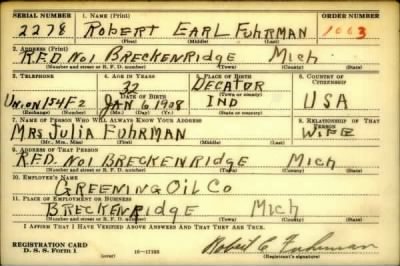 SERIAL NUMBER 1. NAME (Print) ORDER NUMBER
2278 ROBERT EARL FUHRMAN 1003
(First) (Middle) (Last)
2. ADDRESS (Print)
R.F.D. NO1 BRECKENRIDGE MICH
(Number and street or R. F. D. number) (Town) (County) (State)
3. TELEPHONE 4. AGE IN YEARS 5. PLACE OF BIRTH 6. COUNTRY OF CITIZENSHIP
32 DECATOR
DATE OF BIRTH (Town or county)
UNION 154F2 JAN 6 1908 IND USA
(Exchange) (Number) (Mo.) (Day) (Yr.) (State or country)
7. NAME OF PERSON WHO WILL ALWAYS KNOW YOUR ADDRESS 8. RELATIONSHIP OF THAT PERSON
MRS JULIA FUHRMAN WIFE
(Mr., Mrs., Miss) (First) (Middle) (Last)
9. ADDRESS OF THAT PERSON
R.F.D. NO1 BRECKENRIDGE MICH
(Number and street or R. F. D. number) (Town) (County) (State)
10. EMPLOYER'S NAME
GREENING OIL CO
11. PLACE OF EMPLOYMENT OR BUSINESS
BRECKENRIDGE MICH
(Number and street or R. F. D. number) (Town) (County) (State)
I AFFIRM THAT I HAVE VERIFIED ABOVE ANSWERS AND THAT THEY ARE TRUE.
REGISTRATION CARD
D. S. S. Form 1 (over) 16—17105 Robert E. Fuhrman
(Registrant's signature)